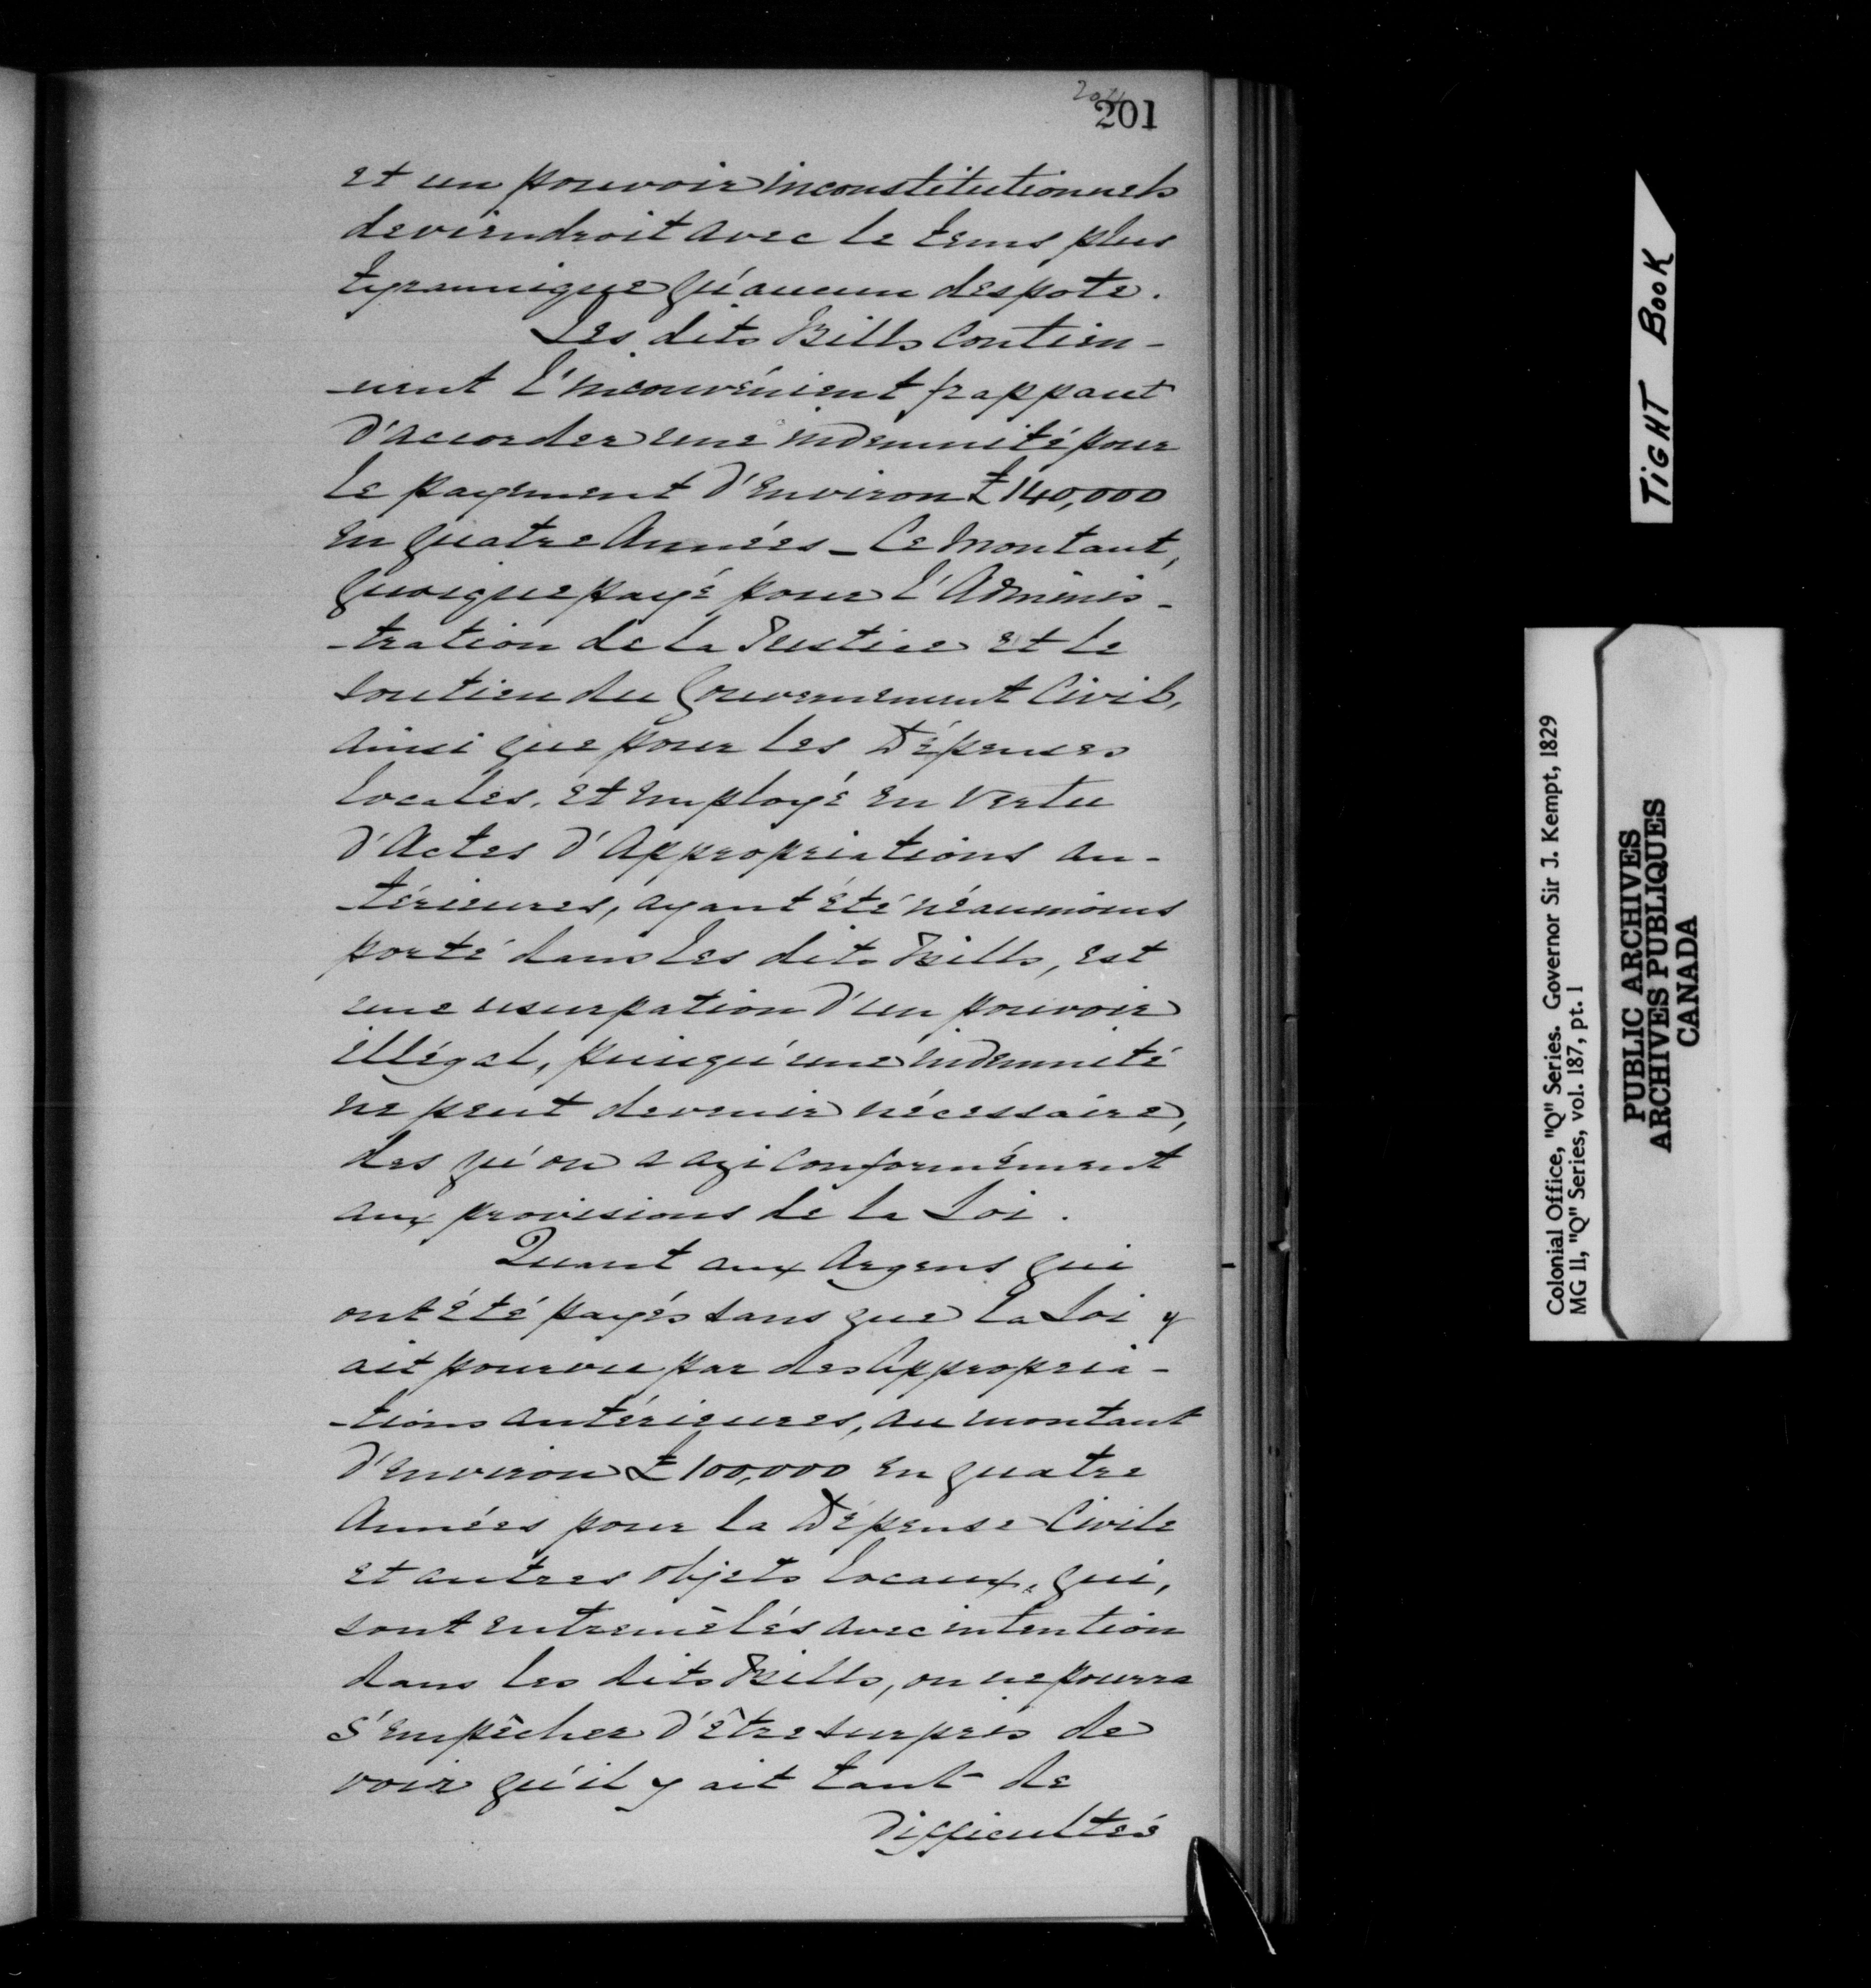 201
et un pouvoir inconstitutionnels
deviendroit avec le tems plus
tyrannique qu'aucun despote.
Les dits Bills contien-
-nent l'inconvénient frappant
d'accorder une indemnité pour
le payement d'environ £140,000
en quatre Années - Ce montant,
quoique payé pour l'Adminis-
-tration de la Justice et le
soutien du Gouvernement Civil,
ainsi que pour les Dépenses
locales, et employé en vertu
d'Actes d'Appropriations an-
-térieures, ayant été néanmoins
porté dans les dits Bills, est
une usurpation d'un pouvoir
illégal, puisqu'une indemnité
ne peut devenir nécessaire,
des qu'on a agi conformément
aux provisions de la Loi.
Quant aux Argens qui
ont été payés sans que la Loi y
ait pourvu par des Appropria-
-tions antérieures, au montant
d'environ £100,000 en quatre
Années pour la Dépense Civile
et autres objets locaux, qui,
sont entremêlés avec intention
dans les dits Bills, on ne pourra
s'empêcher d'être surpris de
voir qu'il y ait tant de
difficultés
TIGHT BOOK
Colonial Office, "Q" Series. Governor Sir J. Kempt, 1829
MG 11, "Q" Series, vol. 187, pt. 1
PUBLIC ARCHIVES
ARCHIVES PUBLIQUES
CANADA